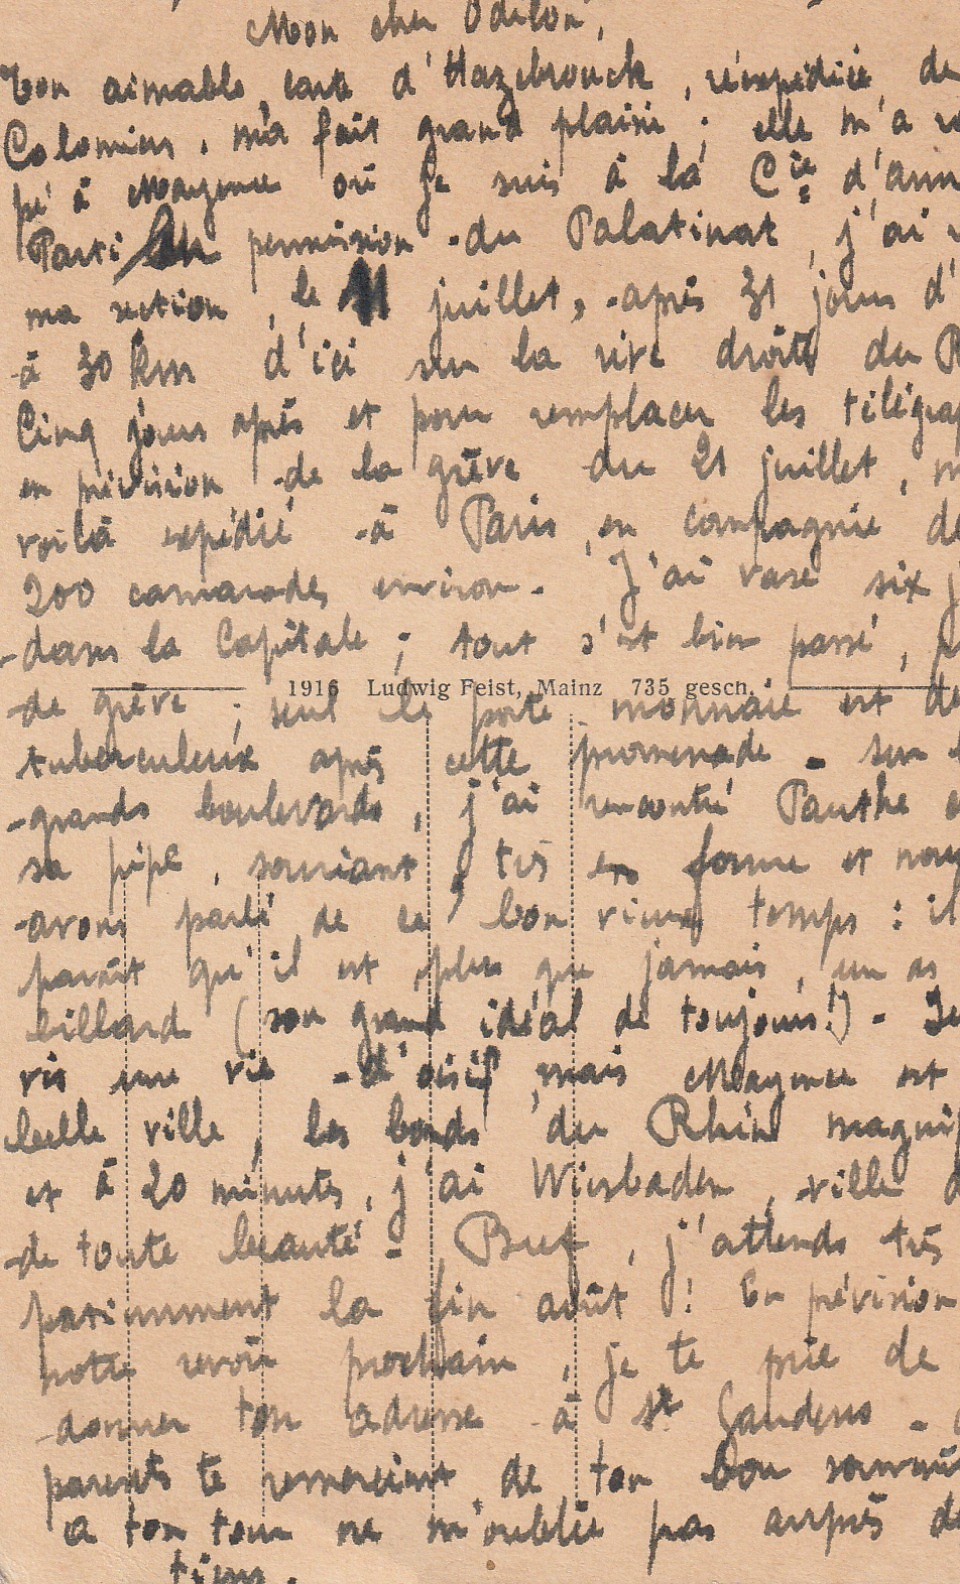 Mon cher Odilon,
Ton aimable carte d'Hazebrouck, réexpédiée de
Colomiers, m'a fait grand plaisir ; elle m'a
pé à Mayence où je suis à la Cie d'
Parti en permission du Palatinat, j'ai
ma section, le 11 juillet, après 31 jours d'
à 30 km d'ici sur la rive droite du R
Cinq jours après et pour remplacer les télégra
en prévision de la grève du 21 juillet, m
voilà expédié à Paris en compagnie de
200 camarades environ. J'ai vasé six j
dans la Capitale ; tout s'est bien passé, p
1916 Ludwig Feist, Mainz 735 gesch.
de grève ; seul le porte monnaie est de
tuberculeux après cette promenade - sur l
grands boulevards, j'ai rencontré Pauthe
sa pipe, souriant, très en forme et nous
avons parlé de ce bon vieux temps : il
paraît qu'il est plus que jamais, un as
billard (son grand idéal de toujours!) - Je
vis une vie d'oisif, mais Mayence est
belle ville, les bords du Rhin magnif
et à 20 minutes, j'ai Wiesbaden, ville d
de toute beauté - Bref, j'attends très
patiemment la fin août ! En prévision
notre revoir prochain, je te prie de
donner ton adresse à St Gaudens -
parents te remercient de ton bon souvenir
a ton tour ne m'oublie pas auprès de
tiens.